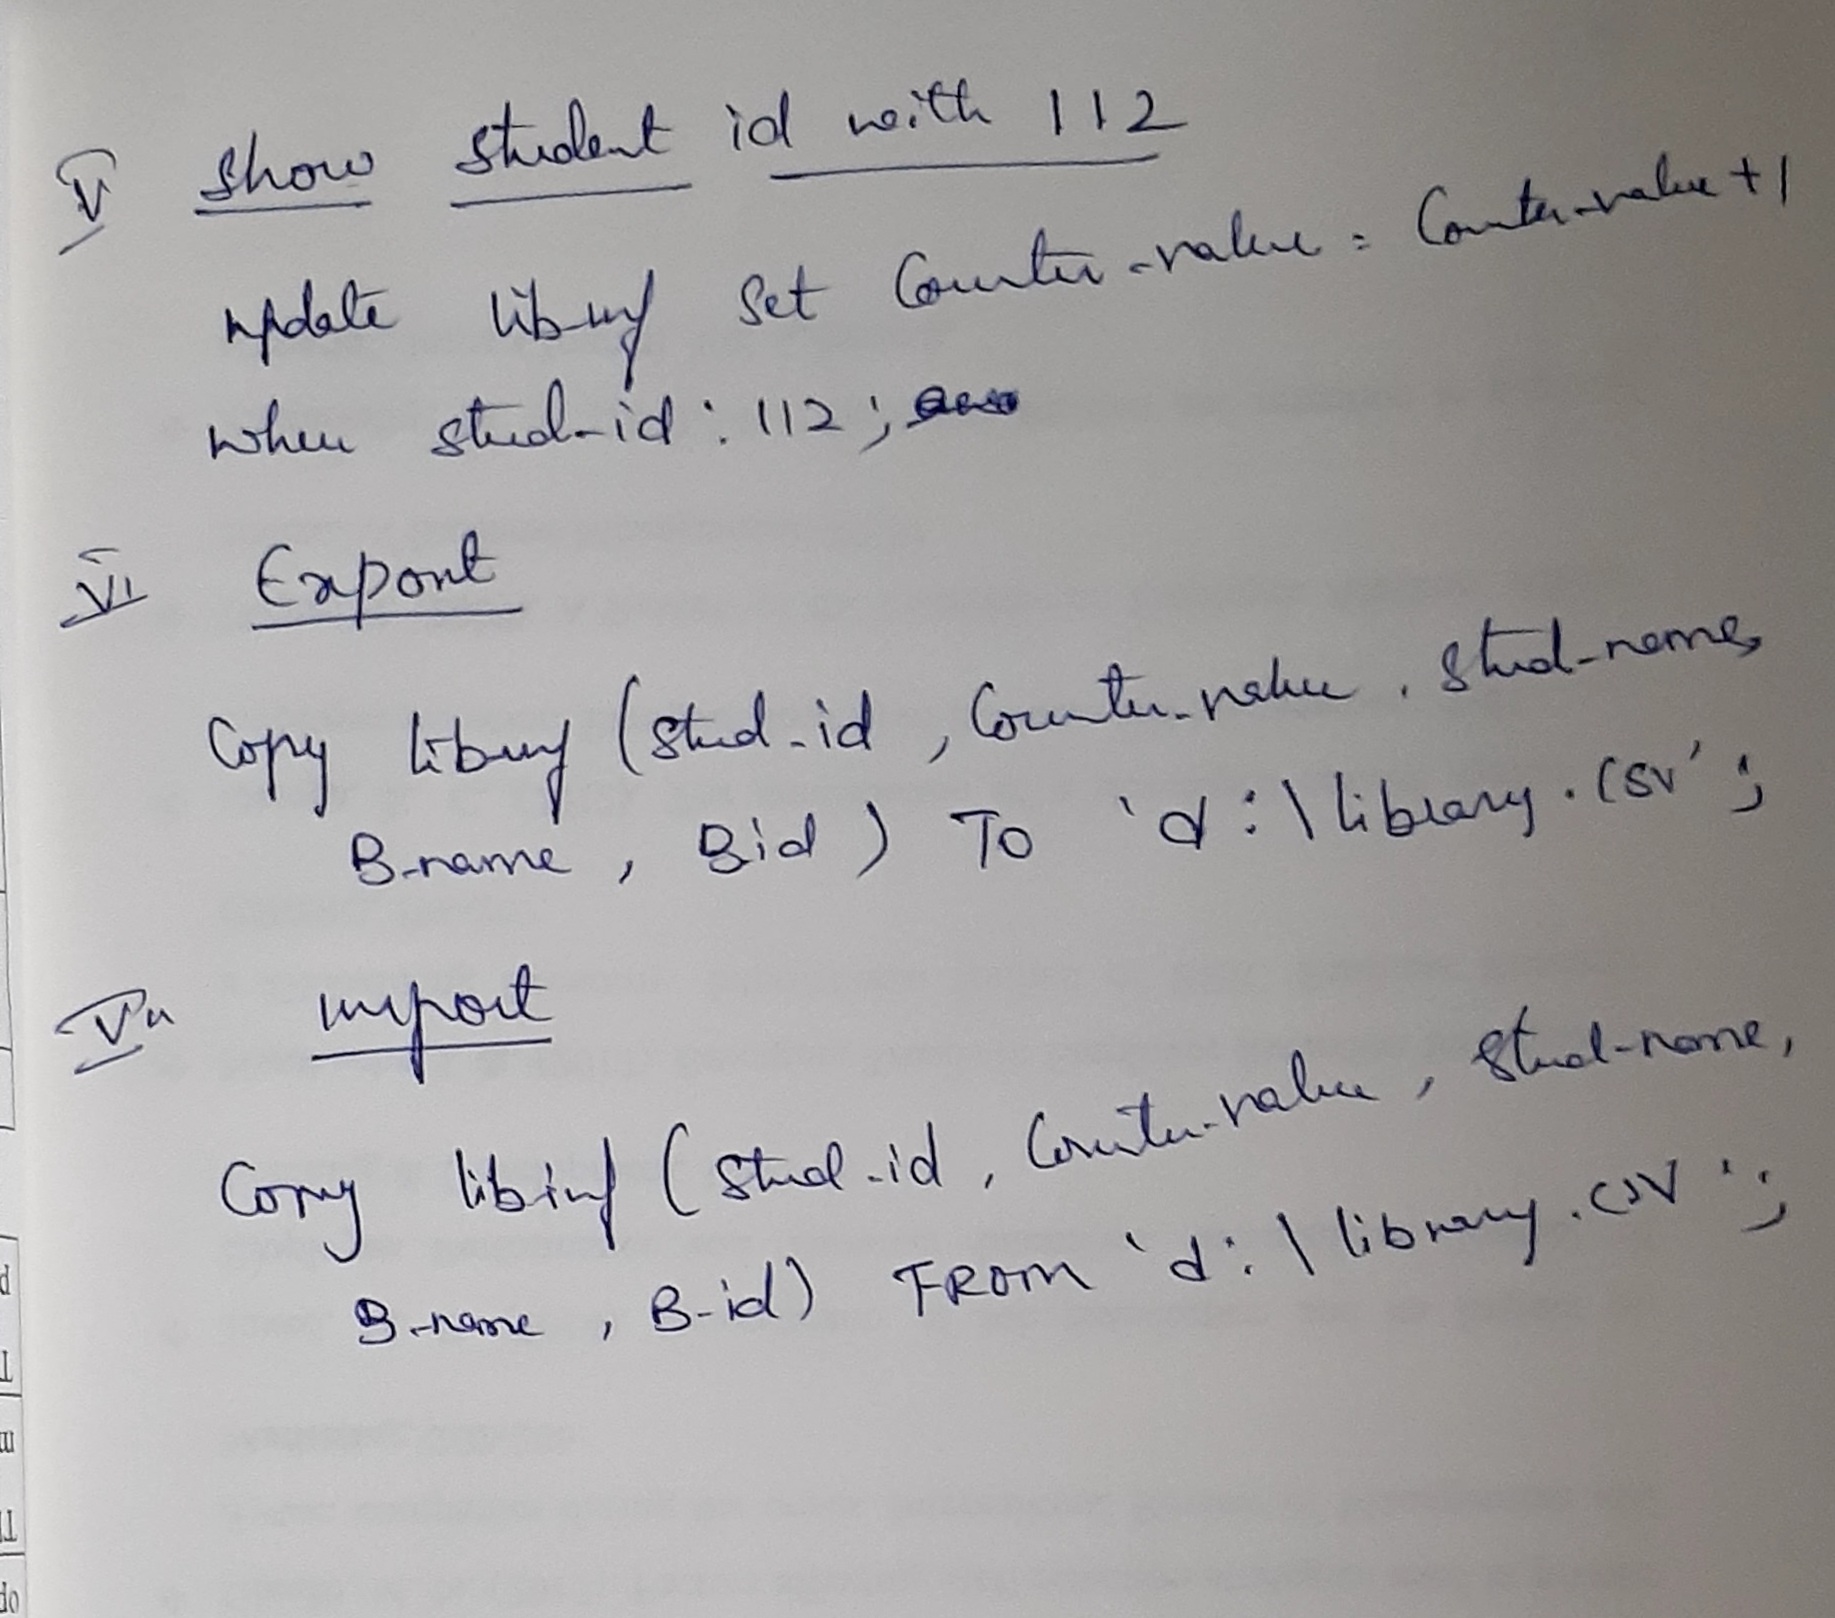 V Show student id with 112
update library set Counter-value = Counter-value +1
when stud-id : 112 ;
VI Export
Copy library (stud-id , Counter-value , Stud-name,
B-name , Bid ) To 'd:\library.csv' ;
VII import
Copy library ( stud-id , Counter-value , Stud-name,
B-name , B-id) FROM 'd:\library.csv' ;
d